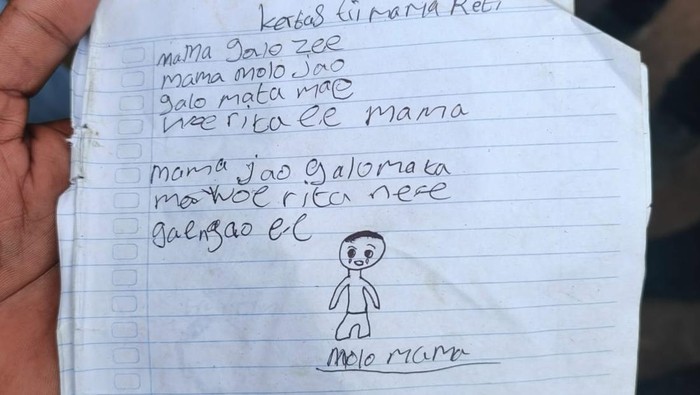 kertas tii mama Reti
mama galo zee
mama molo jao
galo mata mae
woe rita ee mama
mama jao galo mata
mae woe rita nee
gae ngao e-e
molo mama